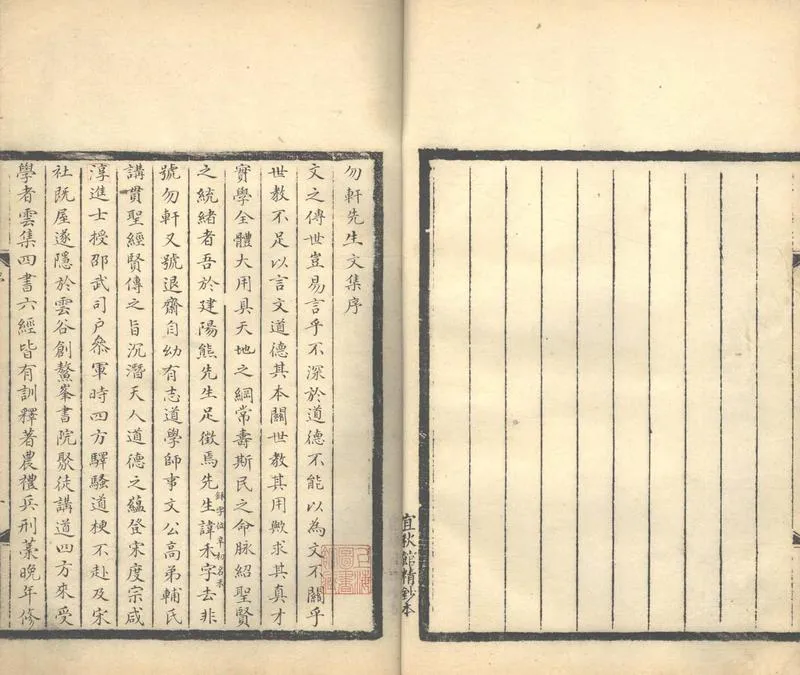 宜秋館精鈔本
勿軒先生文集序
文之傳世豈易言乎不深於道德不能以為文不關乎
世教不足以言文道德其本關世教其用歟求其真才
實學全體大用具天地之綱常壽斯民之命脉紹聖賢
之統緒者吾於建陽熊先生足徵焉先生諱禾字去非
號勿軒又號退齋自幼有志道學師事文公高弟輔氏
講貫聖經賢傳之旨沉潛天人道德之蘊登宋度宗咸
淳進士授邵武司户叅軍時四方驛騷道梗不赴及宋
社既屋遂隱於雲谷創鰲峯書院聚徒講道四方來受
學者雲集四書六經皆有訓釋著農禮兵刑藁晚年修
上海圖書館藏